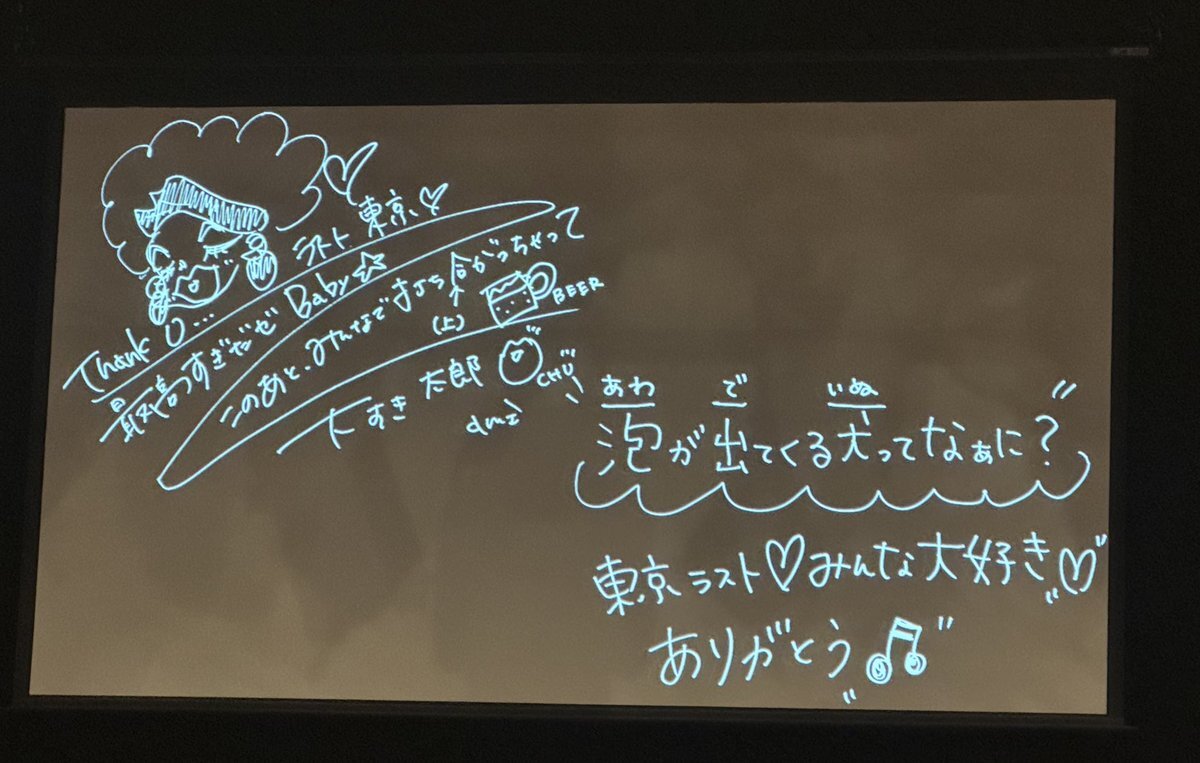 ラスト 東京♡
Thank U...
最高すぎだぜ Baby☆
このあと、みんなで がっちゃって
(上)
BEER
大すき 太郎
CHU
あわ で いぬ
泡が出てくる犬ってなぁに?
東京ラスト♡みんな大好き♡
ありがとう♫